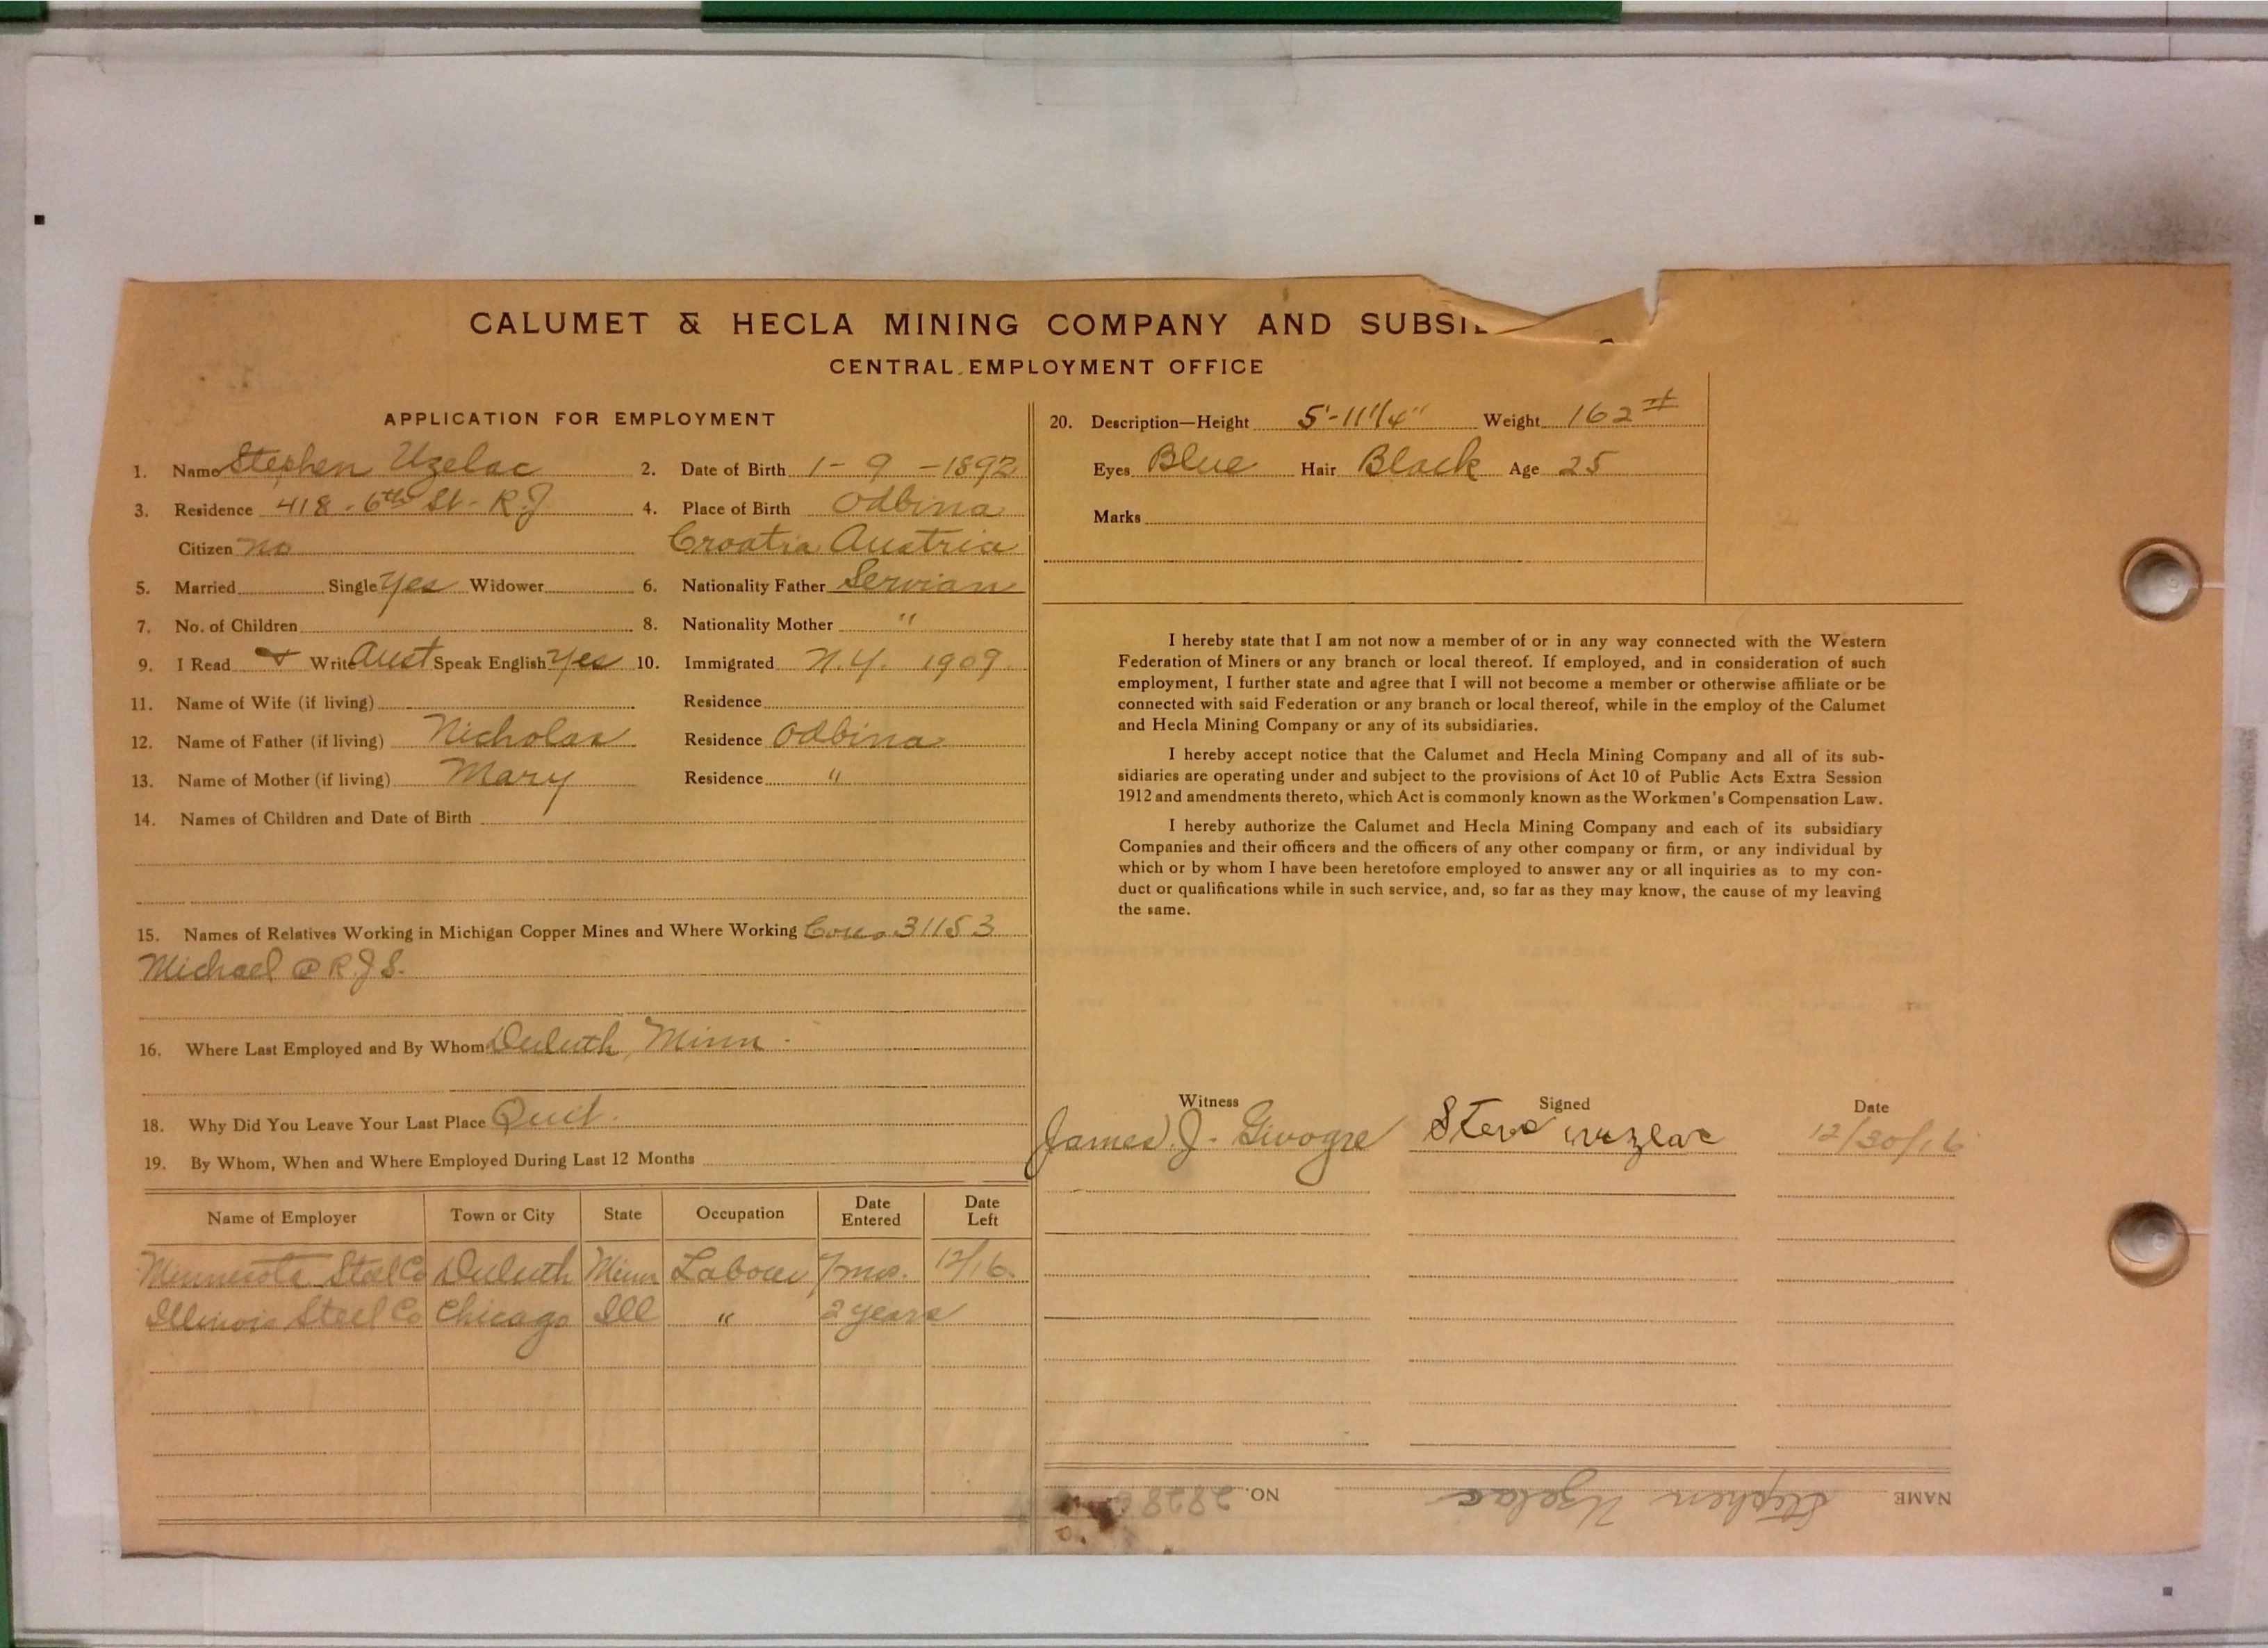 CALUMET & HECLA MINING COMPANY AND SUBSI
CENTRAL EMPLOYMENT OFFICE
APPLICATION FOR EMPLOYMENT
1. Name Stephen Uzelac 2. Date of Birth 1-9-1892
3. Residence 418-6th St- R.J 4. Place of Birth Odbina
Citizen no Croatia Austria
5. Married Single yes Widower 6. Nationality Father Servian
7. No. of Children 8. Nationality Mother "
9. I Read & Write Aust Speak English yes 10. Immigrated N.Y. 1909
11. Name of Wife (if living) Residence
12. Name of Father (if living) Nicholas Residence Odbina
13. Name of Mother (if living) Mary Residence "
14. Names of Children and Date of Birth
15. Names of Relatives Working in Michigan Copper Mines and Where Working 31153
Michael @ R.J S.
16. Where Last Employed and By Whom Duluth, Minn.
18. Why Did You Leave Your Last Place Quit.
19. By Whom, When and Where Employed During Last 12 Months
Name of Employer Town or City State Occupation Date Entered Date Left
Minnesota Steel Co Duluth Minn Labour 7 mos. 12/16.
Illinois Steel Co Chicago Ill " 2 years
20. Description—Height 5'-11 1/4" Weight 162#
Eyes Blue Hair Black Age 25
Marks
I hereby state that I am not now a member of or in any way connected with the Western
Federation of Miners or any branch or local thereof. If employed, and in consideration of such
employment, I further state and agree that I will not become a member or otherwise affiliate or be
connected with said Federation or any branch or local thereof, while in the employ of the Calumet
and Hecla Mining Company or any of its subsidiaries.
I hereby accept notice that the Calumet and Hecla Mining Company and all of its sub-
sidiaries are operating under and subject to the provisions of Act 10 of Public Acts Extra Session
1912 and amendments thereto, which Act is commonly known as the Workmen's Compensation Law.
I hereby authorize the Calumet and Hecla Mining Company and each of its subsidiary
Companies and their officers and the officers of any other company or firm, or any individual by
which or by whom I have been heretofore employed to answer any or all inquiries as to my con-
duct or qualifications while in such service, and, so far as they may know, the cause of my leaving
the same.
Witness Signed Date
James J. Steve 12/30/16
NAME Stephen Uzelac NO.